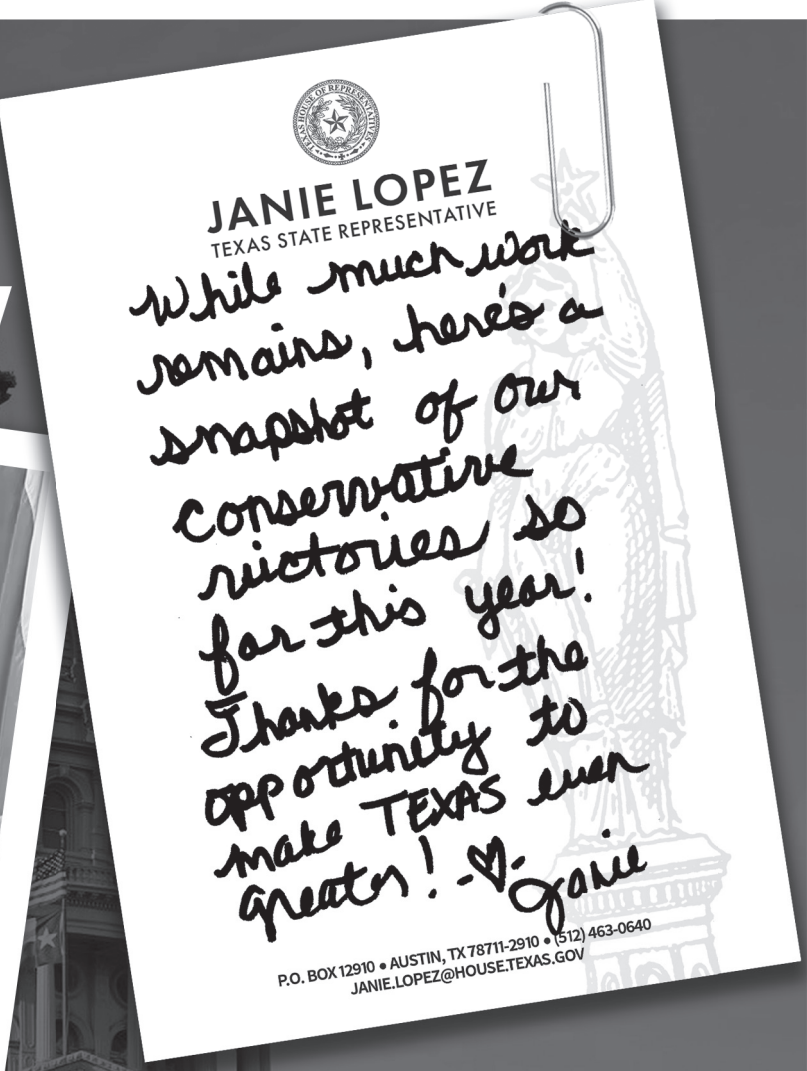 TEXAS HOUSE OF REPRESENTATIVES
JANIE LOPEZ
TEXAS STATE REPRESENTATIVE
While much work
remains, here's a
snapshot of our
conservative
victories so
far this year!
Thanks for the
opportunity to
make TEXAS even
greater! -♡- Janie
P.O. BOX 12910 • AUSTIN, TX 78711-2910 • (512) 463-0640
JANIE.LOPEZ@HOUSE.TEXAS.GOV